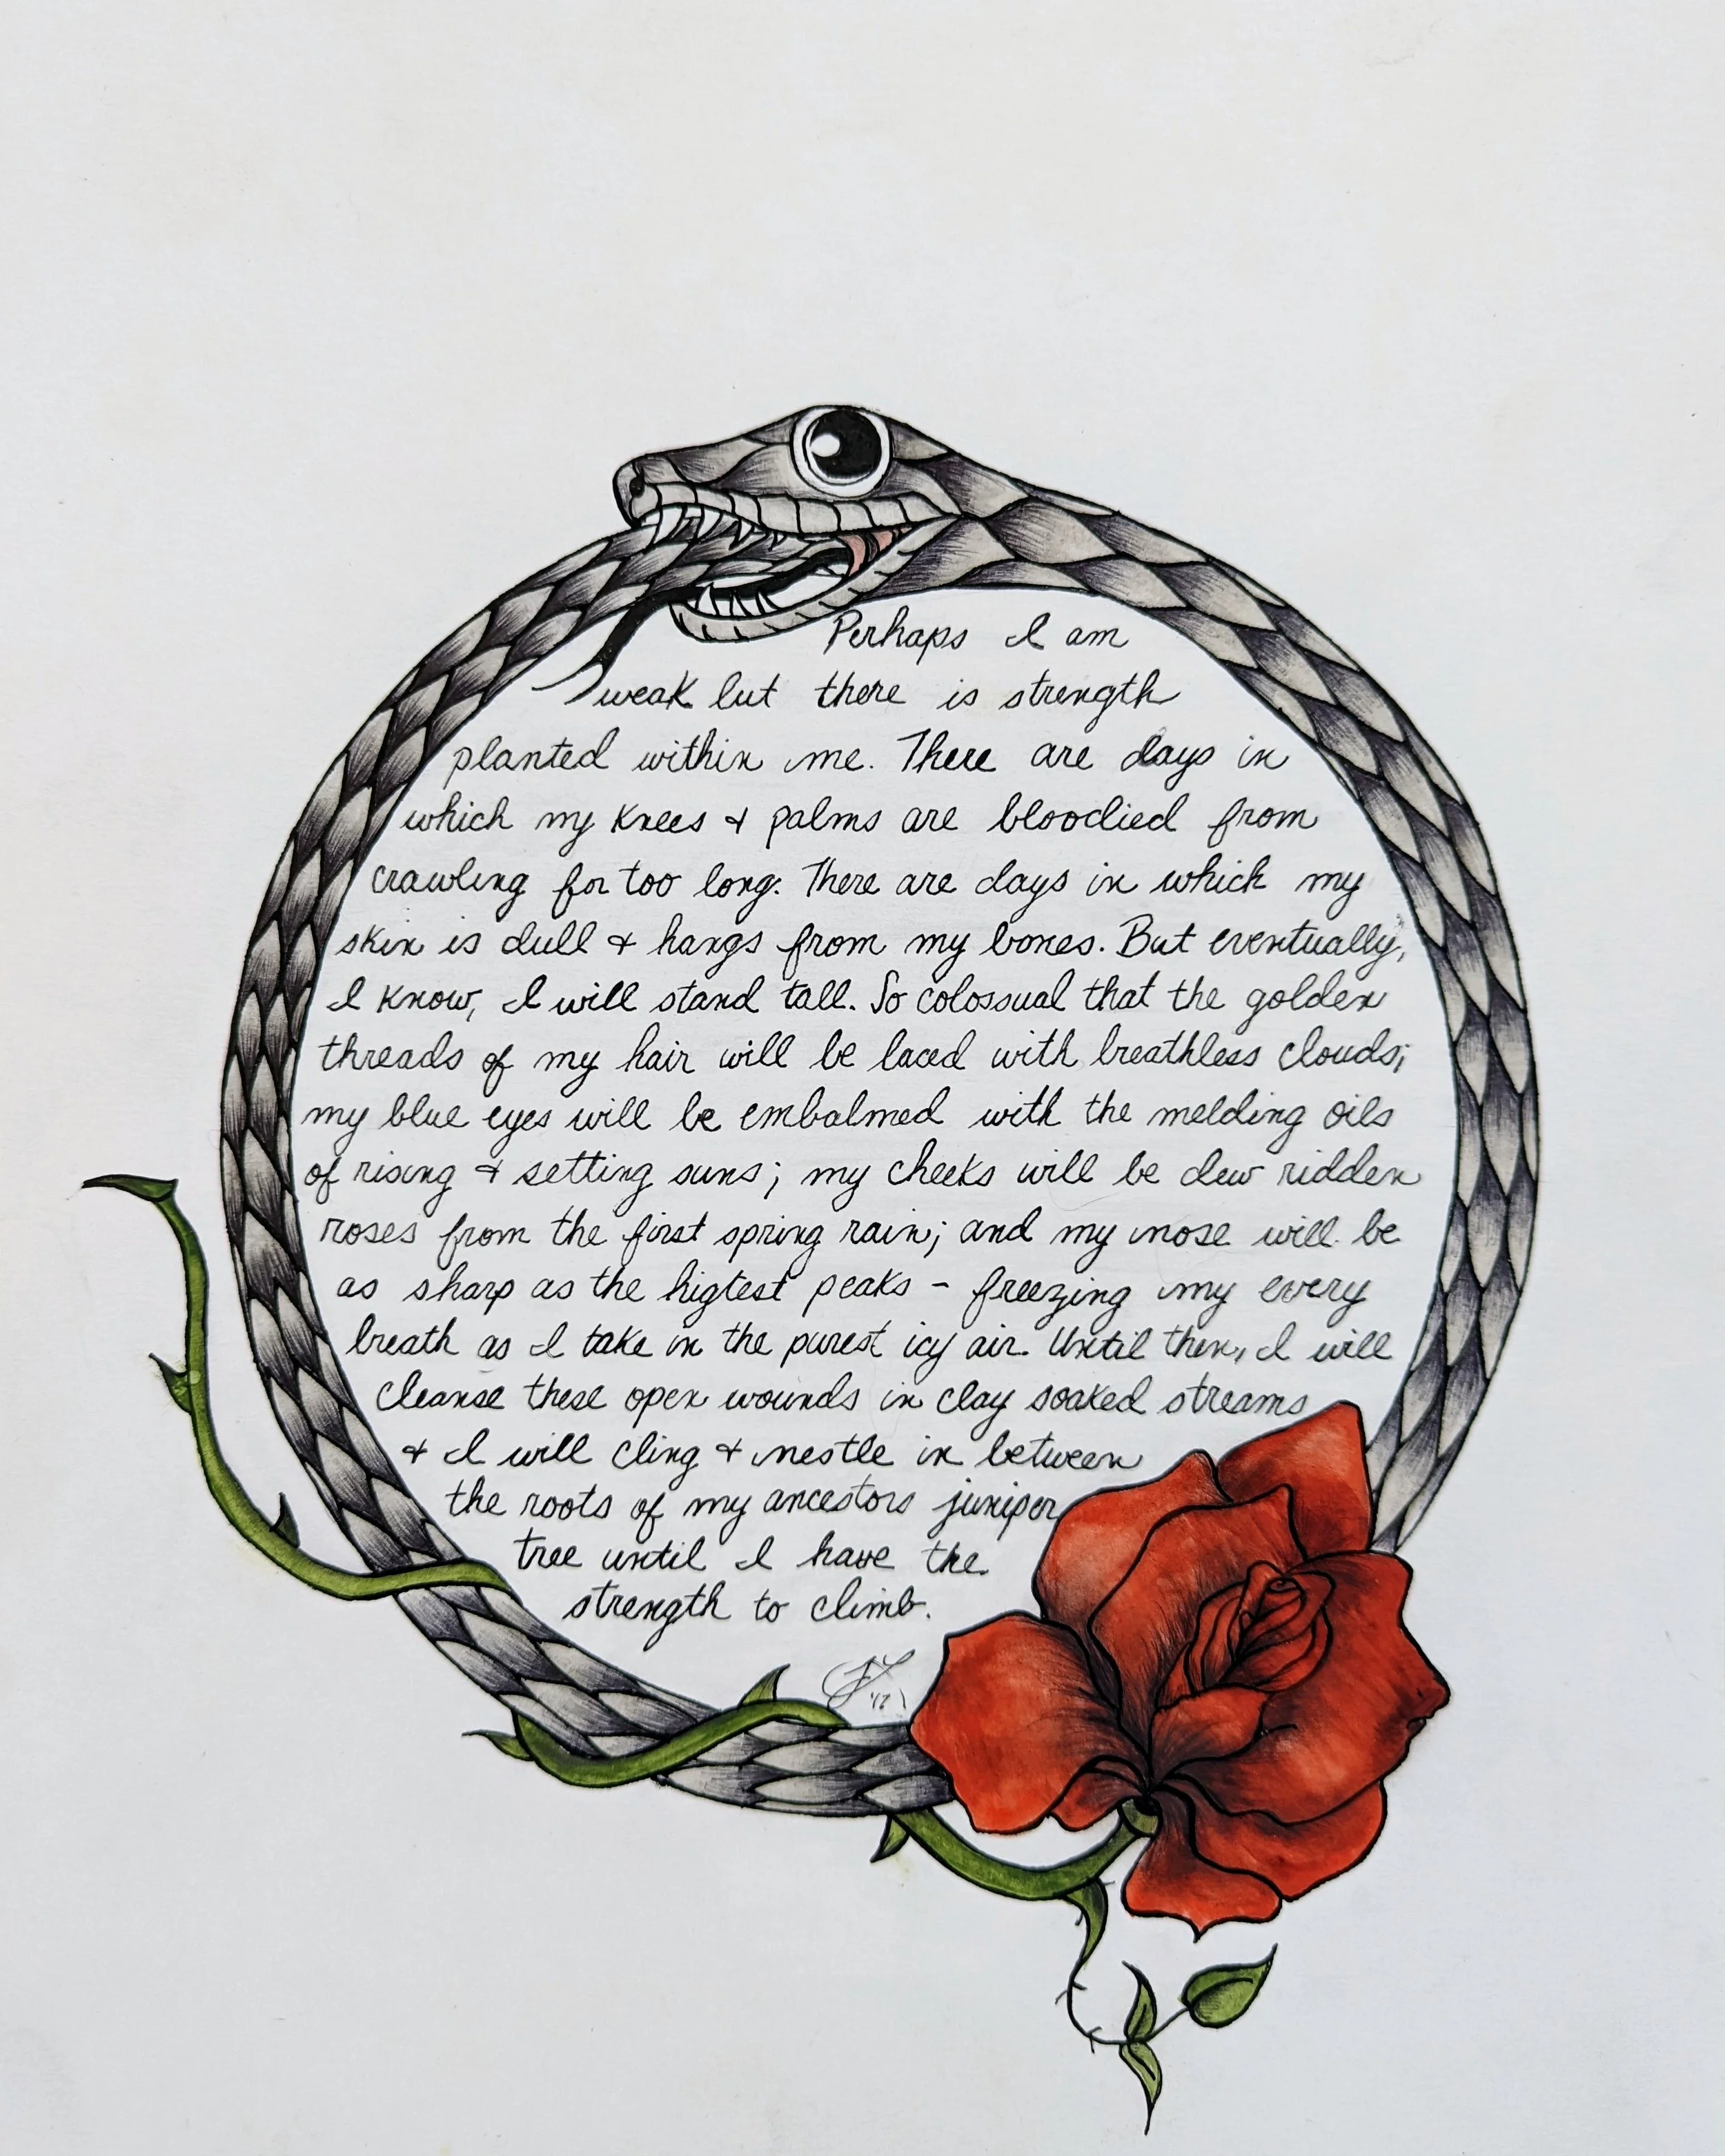 Perhaps I am
weak but there is strength
planted within me. There are days in
which my knees & palms are bloodied from
crawling for too long. There are days in which my
skin is dull & hangs from my bones. But eventually,
I know, I will stand tall. So colossual that the golden
threads of my hair will be laced with breathless clouds;
my blue eyes will be embalmed with the melding oils
of rising & setting suns; my cheeks will be dew ridden
roses from the first spring rain; and my nose will be
as sharp as the higtest peaks - freezing my every
breath as I take in the purest icy air. Until then, I will
cleanse these open wounds in clay soaked streams
& I will cling & nestle in between
the roots of my ancestors juniper
tree until I have the
strength to climb.